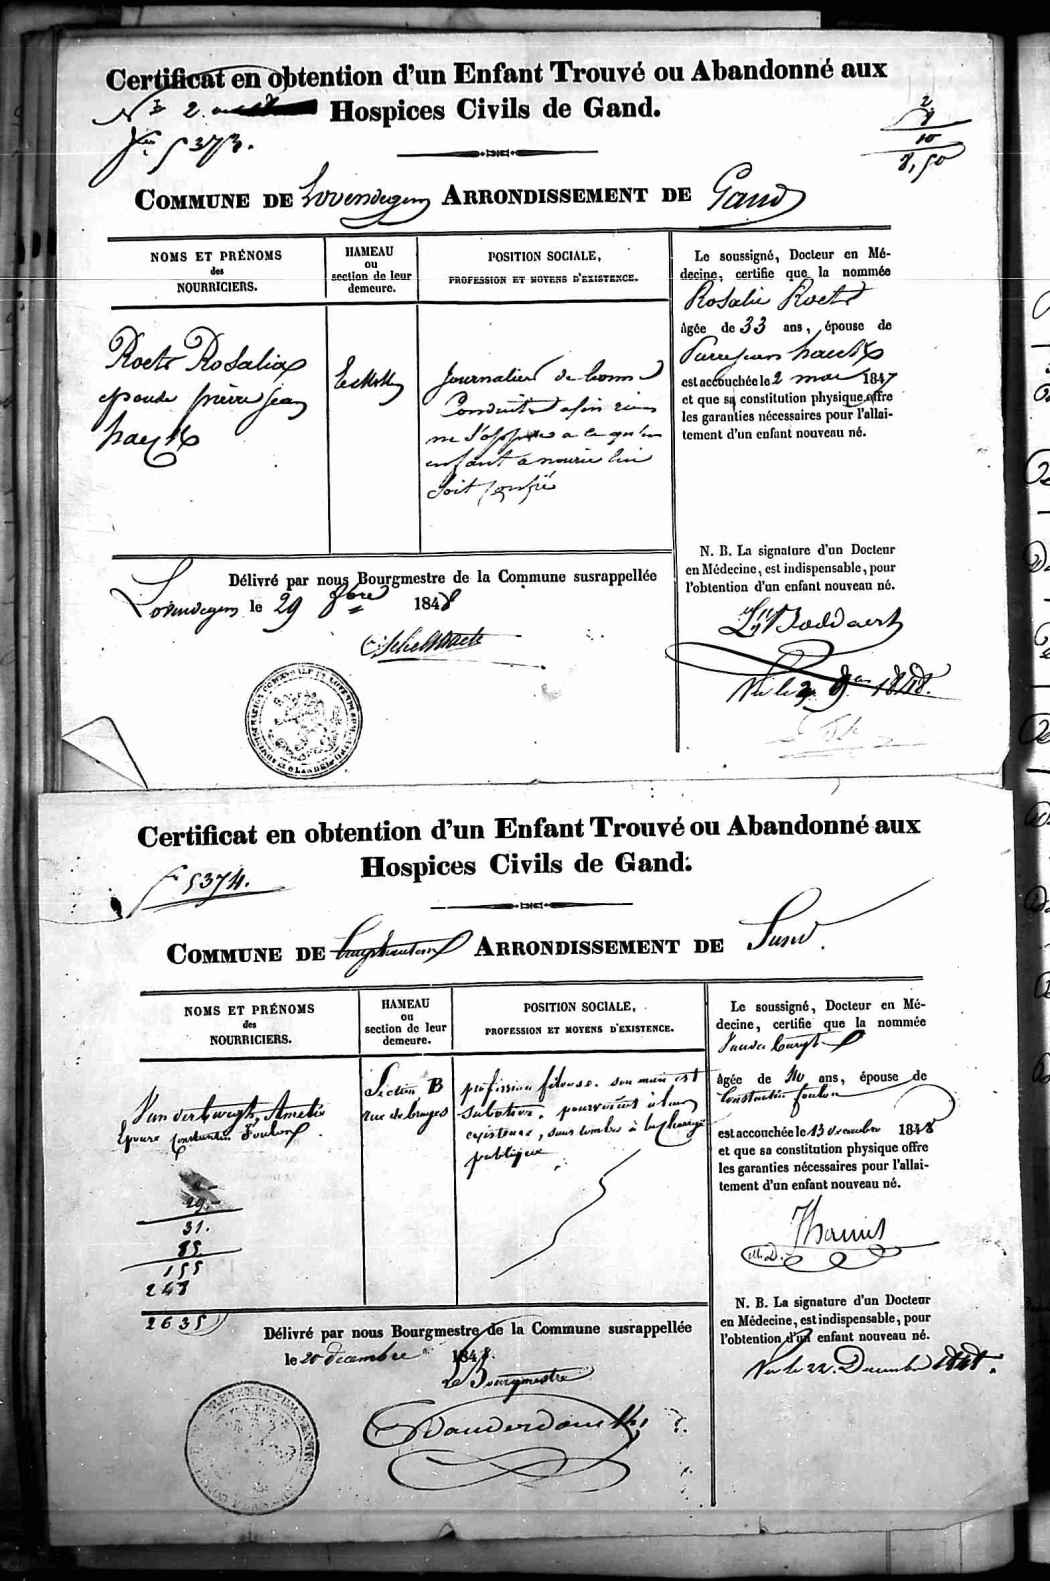 Certificat en obtention d'un Enfant Trouvé ou Abandonné aux
Hospices Civils de Gand.
N° 2
5373.
2
10
8,50
COMMUNE DE Lovendegem ARRONDISSEMENT DE Gand
NOMS ET PRÉNOMS
des
NOURRICIERS.
HAMEAU
ou
section de leur
demeure.
POSITION SOCIALE,
PROFESSION ET MOYENS D'EXISTENCE.
Roets Rosalia
epouse pierre jean
haeck
journalier de bonne
Conduite rien
ne s'oppose a ce qu'un
enfant a nourir lui
soit confié
Le soussigné, Docteur en Mé-
decine, certifie que la nommée
Rosalie Roets
âgée de 33 ans, épouse de
Pierre jean haeck
est accouchée le 2 mai 1847
et que sa constitution physique offre
les garanties nécessaires pour l'allai-
tement d'un enfant nouveau né.
N. B. La signature d'un Docteur
en Médecine, est indispensable, pour
l'obtention d'un enfant nouveau né.
Boddaert
Vu le 1848.
Délivré par nous Bourgmestre de la Commune susrappellée
Lovendegem le 29 1848
Certificat en obtention d'un Enfant Trouvé ou Abandonné aux
Hospices Civils de Gand.
5374.
COMMUNE DE ARRONDISSEMENT DE Gand.
NOMS ET PRÉNOMS
des
NOURRICIERS.
HAMEAU
ou
section de leur
demeure.
POSITION SOCIALE,
PROFESSION ET MOYENS D'EXISTENCE.
Amelie
Epouse Constantin Foulon
Section B
rue de bruges
profession fileuse. son mari est
pourvoient à leur
existence, sans tomber à la charge
publique
29
31.
85.
155
248
2635
Le soussigné, Docteur en Mé-
decine, certifie que la nommée
âgée de 40 ans, épouse de
Constantin foulon
est accouchée le 13 decembre 1848
et que sa constitution physique offre
les garanties nécessaires pour l'allai-
tement d'un enfant nouveau né.
M.D.
N. B. La signature d'un Docteur
en Médecine, est indispensable, pour
l'obtention d'un enfant nouveau né.
Vu le 22 Decembre 1848.
Délivré par nous Bourgmestre de la Commune susrappellée
le 20 decembre 1848.
Le Bourgmestre